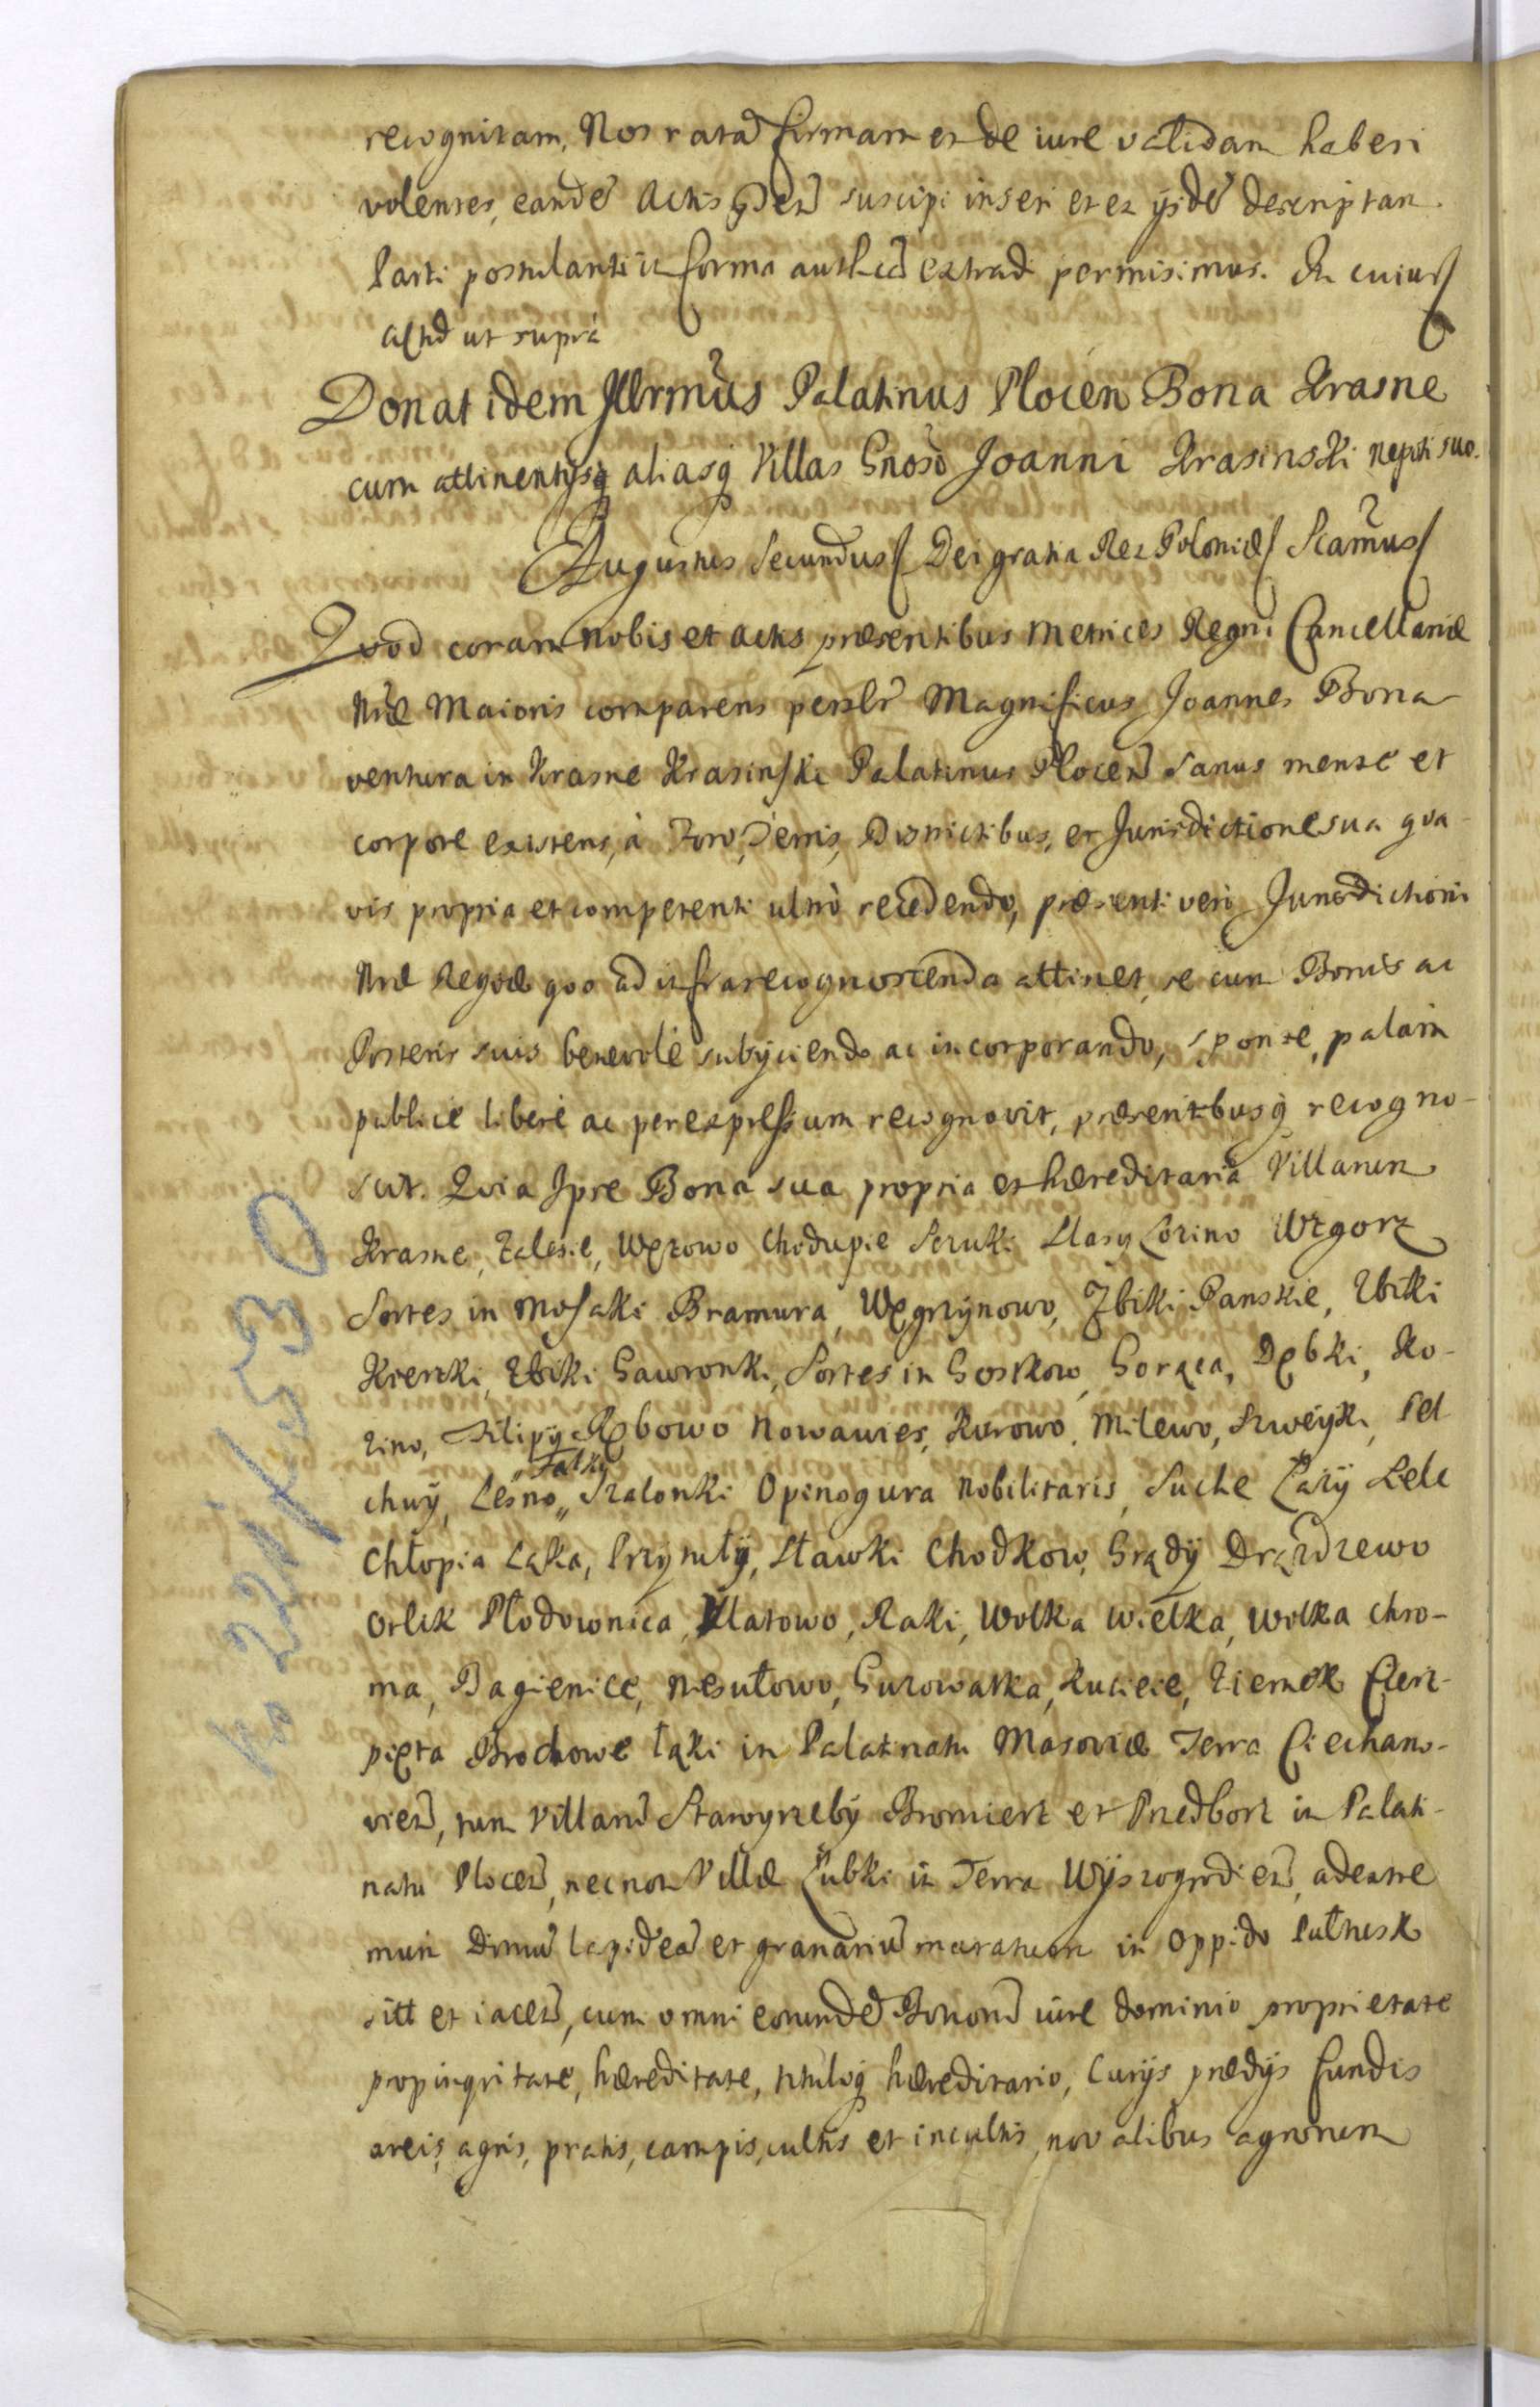 recognitam, Nos ratã firmam et de iure validam haberi
volentes, eandẽ Actis suscipi inseri et ex ijsdẽ descriptam
Parti postulanti in forma authca extradi permisimus. In cuius
act ut supra
Donat idem Illrmus Palatinus Plocen Bona Krasne
cum attinentijsq aliasq Villas Gnoso Joanni Krasinski nepoti suo.
Augustus Secundus Dei gratia Rex Poloniæ Scamus
Quod coram nobis et actis præsentibus Metrices Regni Cancellariæ
Nræ Maioris comparens persler Magnificus Joannes Bona
ventura in Krasne Krasinski Palatinus Plocen sanus mente et
corpore existens, à Foro, Terris, Districtibus, et Jurisdictione sua qua
vis propria et competenti ultrò recedendo, præsenti verò Jurisdictioni
Nræ Regiæ quo ad infra recognoscenda attinet, se cum Bonis ac
Posteris suis benevolè subijciendo ac incorporando, sponte, palam
publice liberè ac per expressum recognovit, præsentibusq recogno-
scit. Quia Ipse Bona sua propria et hæreditaria Villarum
Krasne, Zalesie, Wężowo Chodupie Szruki Łłasy Łozino Wzgorz
Sortes in Mosaki Bramura, Węgrzynowo, Zbiki Panskie, Zbiki
Kierzki, Zbiki Gawronki, Sortes in Goskow, Gorąca, Dębki, Ko-
zino, Filipy Rębowo Nowawies, Kurowo, Milewo, Szweyki, Pel
chwÿ, Leśno „Fatky Szalonki Opinogura Nobilitaris, Suche Łażÿ Lele
Chłopia Łąka, Przytułÿ, Sławki Chodkow, Grądÿ Drążdzewo
Orlik Płodownica, Ułatowo, Raki, Wolka Wielka, Wolka Chro-
ma, Bagienice, Niesułowo, Guzowatka, Kuciecie, Ziemek Cierz-
pięta Brochowe łąki in Palatinatu Masoviæ Terra Ciechano-
vien, tum Villarũ Starogrzebÿ Bromierz et Przedborz in Palati-
natu Plocen, necnon Villæ Łubki in Terra Wÿszogrodien, ad extre
mum Domũ lapideã et granariũ muratum in Oppido Pułtusk
sitt et iacen, cum omni eorundẽ Bonorũ iure dominio proprietate
propinqvitate, hæreditate, tituloq hæreditario, Curijs prædijs fundis
areis, agris, pratis, campis, cultis et incultis, novalibus agrorum